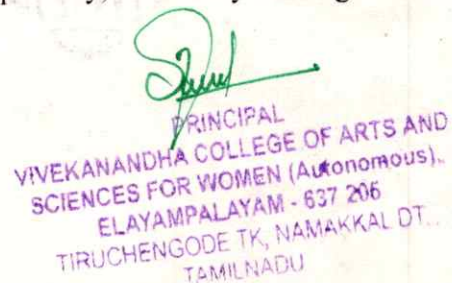 PRINCIPAL
VIVEKANANDHA COLLEGE OF ARTS AND
SCIENCES FOR WOMEN (Autonomous).,
ELAYAMPALAYAM - 637 206
TIRUCHENGODE TK, NAMAKKAL DT.,
TAMILNADU